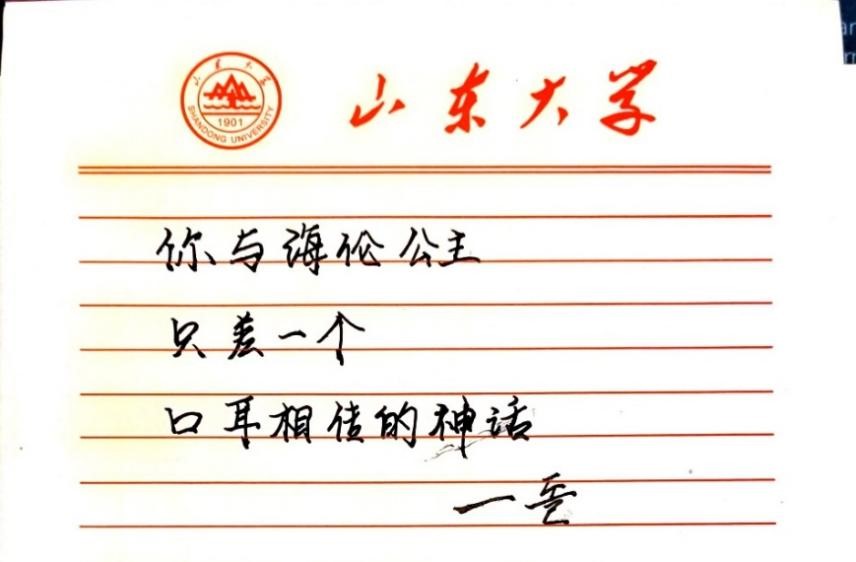 山东大学
山东大学
SHANDONG UNIVERSITY
1901
你与海伦公主
只差一个
口耳相传的神话